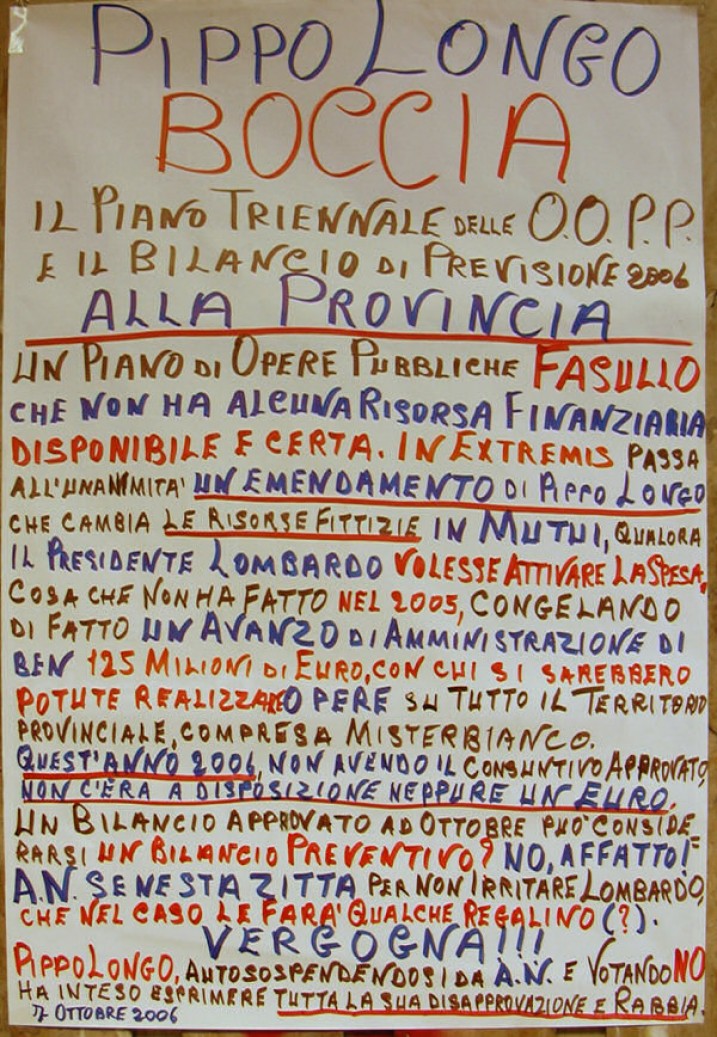 PIPPO LONGO
BOCCIA
IL PIANO TRIENNALE DELLE O.O.P.P.
E IL BILANCIO DI PREVISIONE 2006
ALLA PROVINCIA
UN PIANO DI OPERE PUBBLICHE FASULLO
CHE NON HA ALCUNA RISORSA FINANZIARIA
DISPONIBILE E CERTA. IN EXTREMIS PASSA
ALL'UNANIMITA' UN EMENDAMENTO DI PIPPO LONGO
CHE CAMBIA LE RISORSE FITTIZIE IN MUTUI, QUALORA
IL PRESIDENTE LOMBARDO VOLESSE ATTIVARE LA SPESA,
COSA CHE NON HA FATTO NEL 2005, CONGELANDO
DI FATTO UN AVANZO DI AMMINISTRAZIONE DI
BEN 125 MILIONI DI EURO, CON CUI SI SAREBBERO
POTUTE REALIZZARE OPERE SU TUTTO IL TERRITORIO
PROVINCIALE, COMPRESA MISTERBIANCO.
QUEST'ANNO 2006, NON AVENDO IL CONSUNTIVO APPROVATO,
NON C'ERA A DISPOSIZIONE NEPPURE UN EURO.
UN BILANCIO APPROVATO AD OTTOBRE PUO' CONSIDE=
RARSI UN BILANCIO PREVENTIVO? NO, AFFATTO!
A.N. SE NE STA ZITTA PER NON IRRITARE LOMBARDO,
CHE NEL CASO LE FARA' QUALCHE REGALINO (?).
VERGOGNA!!!
PIPPO LONGO, AUTOSOSPENDENDOSI DA A.N. E VOTANDO NO
HA INTESO ESPRIMERE TUTTA LA SUA DISAPPROVAZIONE E RABBIA.
17 OTTOBRE 2006